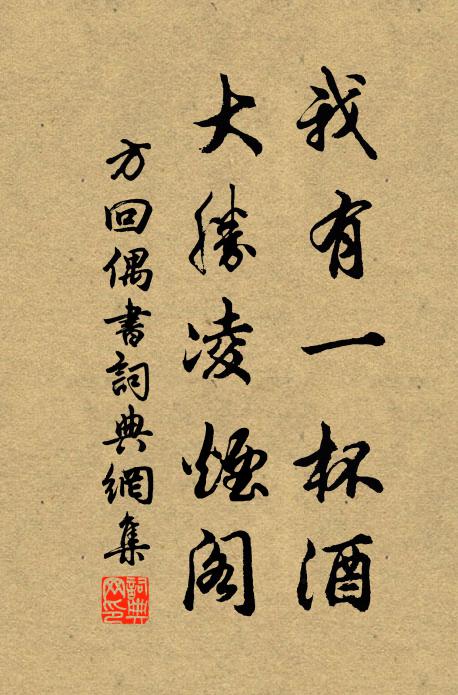 我有一杯酒
大勝凌煙閣
方回偶書詞典網集
詞典网印